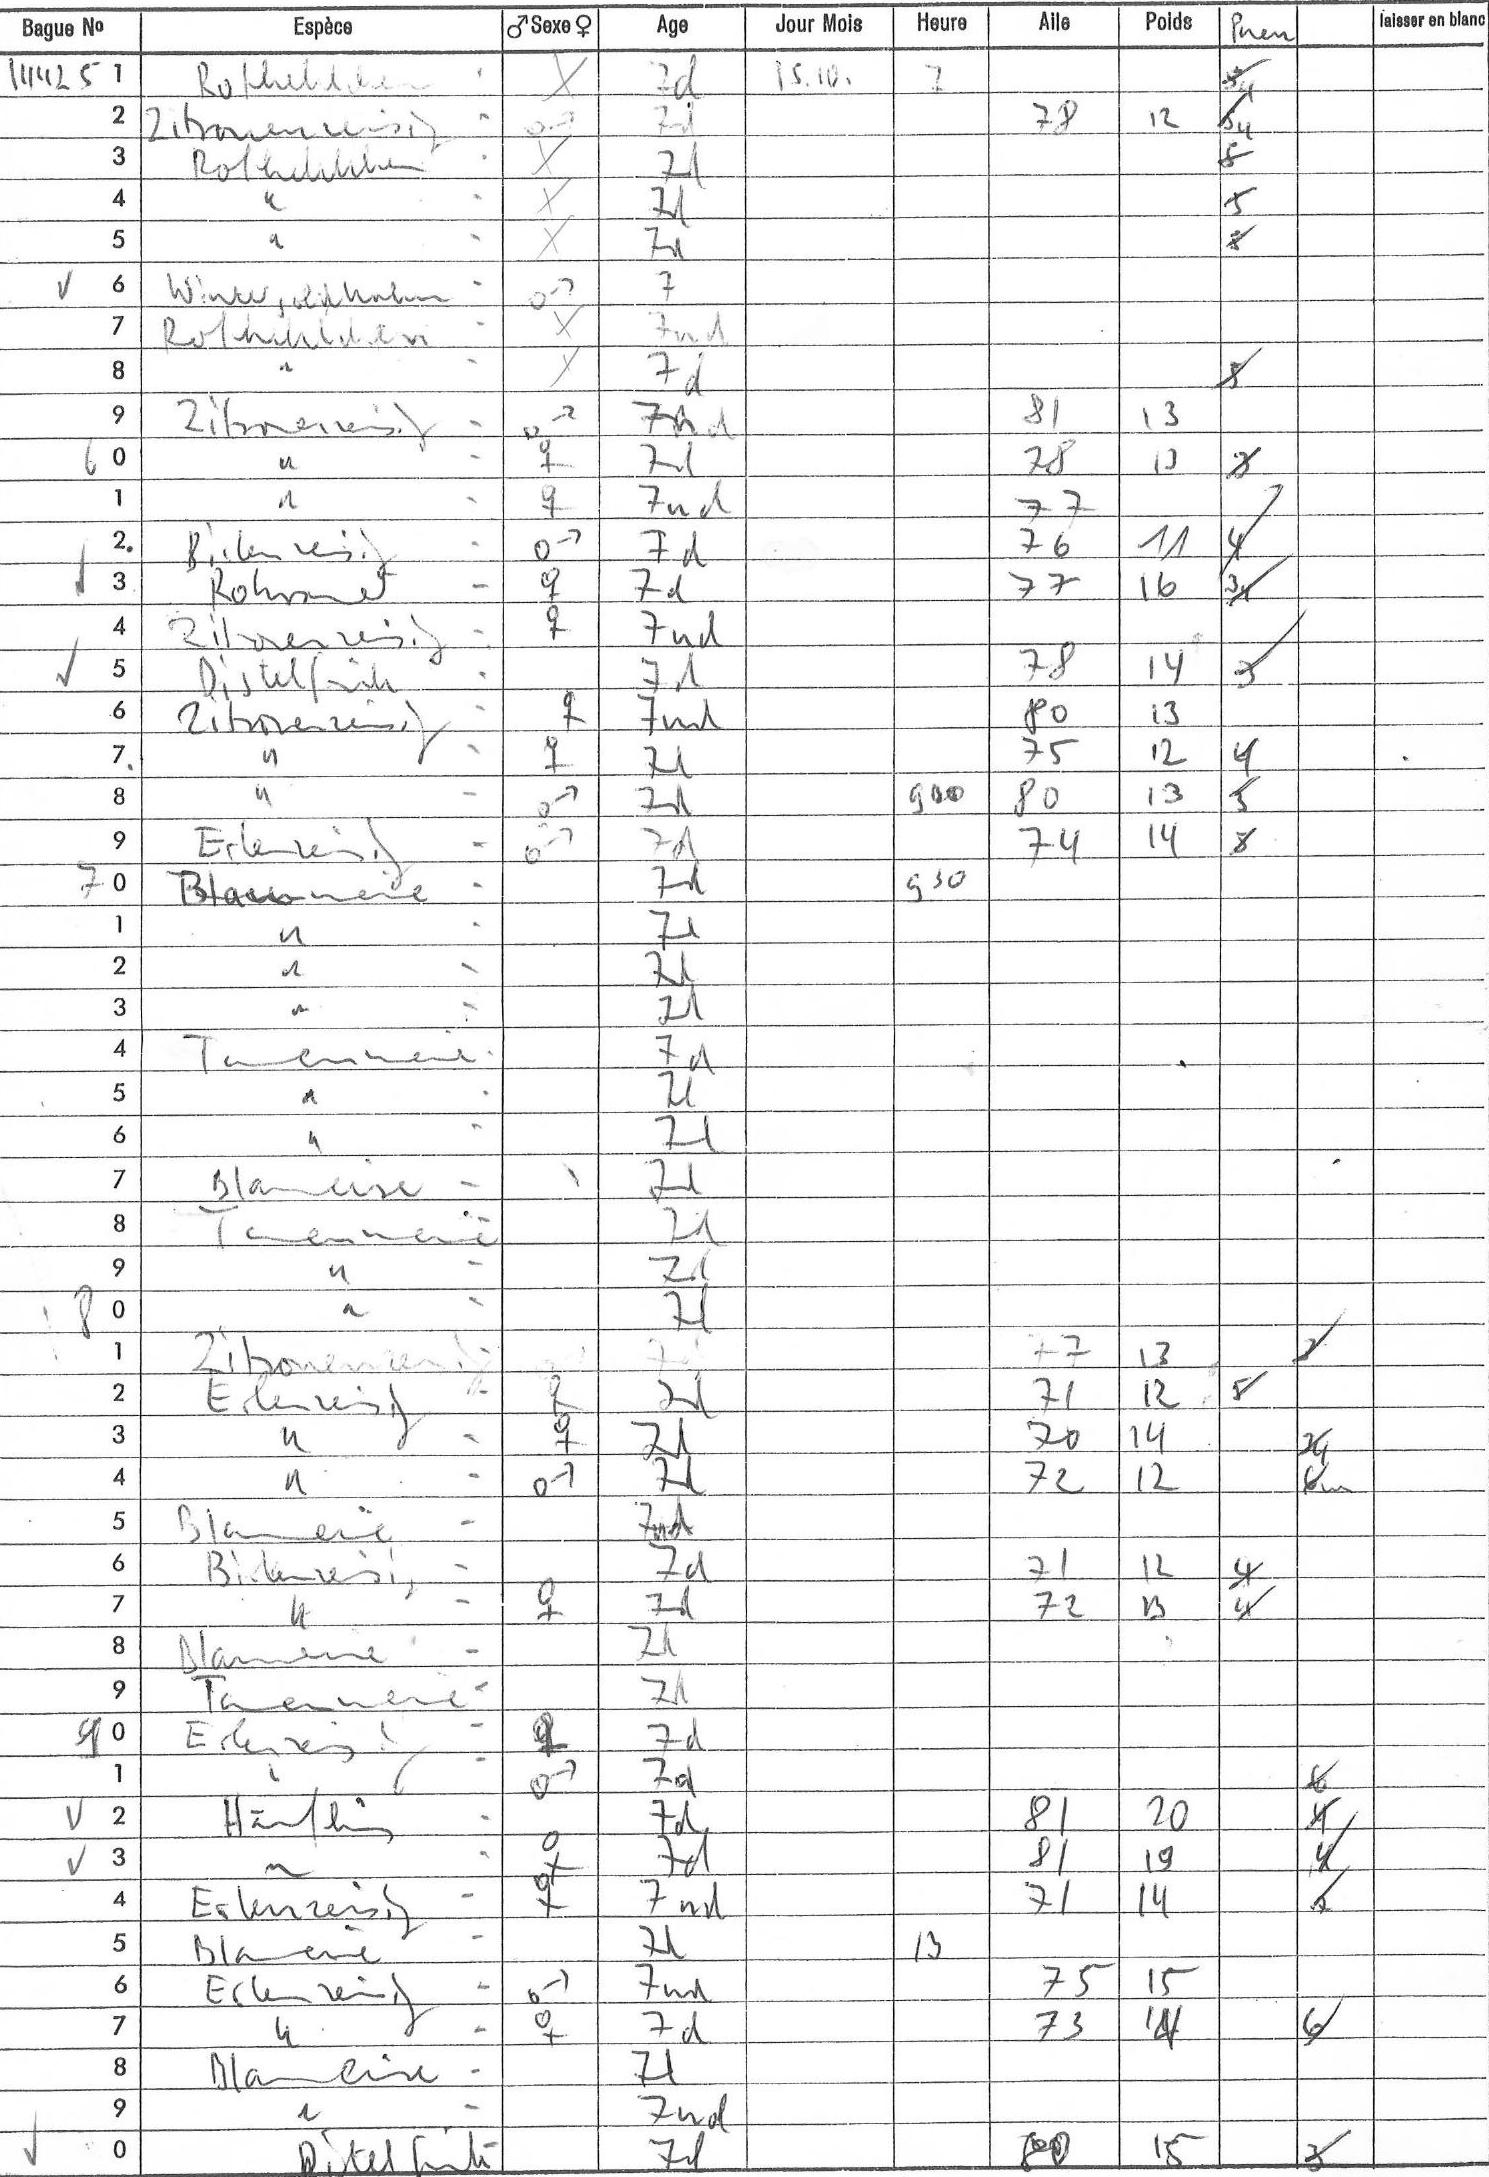 Bague No Espèce ♂ Sexe ♀ Age Jour Mois Heure Aile Poids Pneu laisser en blanc
1 Rotkehlchen X 7d 15.10. 7
2 Zitronenzeisig ♂ 7d 78 12
3 Rotkehlchen X 7d 5
4 " X 7d 5
5 " X 7d
√ 6 Wintergoldhahn ♂ 7
7 Rotkehlchen X 7nd
8 " X 7d
9 Zitronenzeisig ♂ 7nd 81 13
6 0 " ♀ 7d 78 13
1 " ♀ 7nd 77
2. Birkenzeisig ♂ 7d 76 11 4
√ 3 ♀ 7d 77 16
4 Zitronenzeisig ♀ 7nd
√ 5 Distelfink 7d 78 14 3
6 Zitronenzeisig ♀ 7nd 80 13
7. " ♀ 7d 75 12 4
8 " ♂ 7d 900 80 13 5
9 Erlenzeisig ♂ 7d 74 14
7 0 Blaumeise 7d 930
1 " 7d
2 " 7d
3 " 7d
4 Tannenmeise 7d
5 " 7d
6 " 7d
7 Blaumeise 7d
8 Tannenmeise 7d
9 " 7d
8 0 " 7d
1 Zitronenzeisig 77 13
2 Erlenzeisig ♀ 7d 71 12 5
3 " ♀ 7d 70 14
4 " ♂ 7d 72 12
5 Blaumeise 7nd
6 Birkenzeisig 7d 71 12 4
7 " ♀ 7d 72 13 4
8 Blaumeise 7d
9 Tannenmeise 7d
9 0 Erlenzeisig ♀ 7d
1 " ♂ 7d 6
√ 2 Hänfling 7d 81 20 4
√ 3 " ♀ 7d 81 19 4
4 Erlenzeisig ♀ 7nd 71 14
5 Blaumeise 7d 13
6 Erlenzeisig ♂ 7nd 75 15
7 " ♀ 7d 73 14 6
8 Blaumeise 7d
9 " 7nd
√ 0 Distelfink 7d 80 15 3